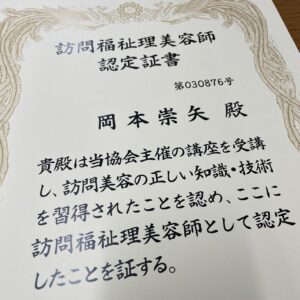 訪問福祉理美容師
認定証書
第030876号
岡本崇矢 殿
貴殿は当協会主催の講座を受講
し、訪問美容の正しい知識・技術
を習得されたことを認め、ここに
訪問福祉理美容師として認定
したことを証する。